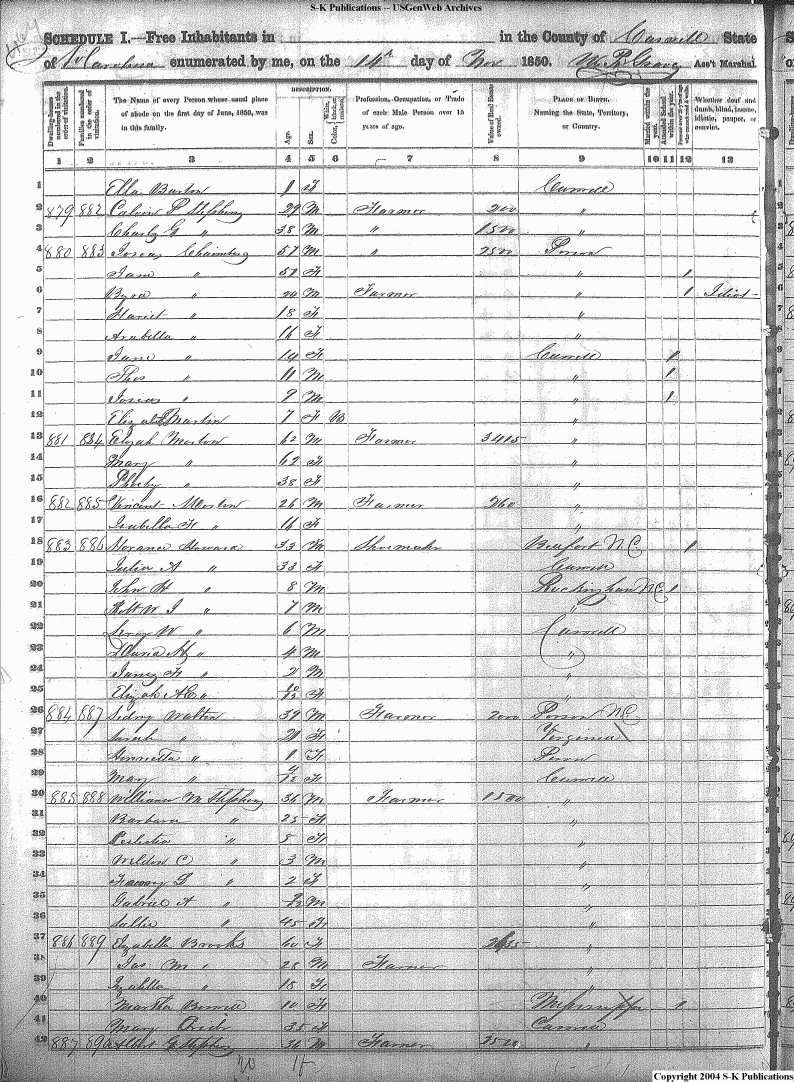 S-K Publications -- USGenWeb Archives
SCHEDULE I.—Free Inhabitants in in the County of Caswell State
of N Carolina enumerated by me, on the 14th day of Nov 1850. Ass't Marshal
DESCRIPTION.
Dwelling-houses numbered in the order of visitation.
Families numbered in the order of visitation.
The Name of every Person whose usual place of abode on the first day of June, 1850, was in this family.
Age.
Sex.
Color, White, black, or mulatto.
Profession, Occupation, or Trade of each Male Person over 15 years of age.
Value of Real Estate owned.
PLACE OF BIRTH. Naming the State, Territory, or Country.
Married within the year.
Attended School within the year.
Whether deaf and dumb, blind, insane, idiotic, pauper, or convict.
1 2 3 4 5 6 7 8 9 10 11 12 13
1 Ella Burton 1 F Caswell
2 879 882 Calvin P Stephens 29 M Farmer 200 "
3 Charly G " 38 M " 1500 "
4 880 883 Josias 57 M " 2500 Person
5 Jane " 57 F " 1
6 " 24 M Farmer " 1 Idiot
7 Hariet " 18 F "
8 Arabella " 16 F "
9 Jane " 14 F Caswell 1
10 Thos " 11 M " 1
11 Josias " 9 M " 1
12 Elizabeth Martin 7 F B "
13 881 884 Elijah Morton 62 M Farmer "
14 Mary " 62 F "
15 Pheeby " 38 F "
16 882 885 Vincent Morton 26 M Farmer 260 "
17 Isabella F " 16 F "
18 883 886 Howard 33 M Shoemaker N.C. 1
19 Julia A " 33 F Caswell
20 John H " 8 M Rockingham N.C. 1
21 Robt W J " 7 M "
22 Leroy W " 6 M Caswell
23 " 4 M "
24 James F " 2 M "
25 Elizah A C " F "
26 884 887 Sidny Walton 39 M Farmer 2000 Person N.C.
27 Sarah " 20 F Virginia
28 Henrietta " 1 F Person
29 Mary " F Caswell
30 885 888 William M Stephens 36 M Farmer 1500 "
31 Barbara " 25 F "
32 " 5 F
33 Weldon C " 3 M "
34 " 2 F "
35 Gabriel A " M "
36 Sallie " 45 F "
37 886 889 Izabella Brooks 60 F "
38 Jas M " 28 M Farmer "
39 Izabella " 18 F "
40 Martha 10 F Mississippi 1
41 Mary 35 F Caswell
42 887 890 Albert G Stephens 36 M Farmer 2500 "
Copyright 2004 S-K Publications